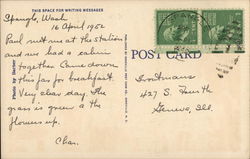 THIS SPACE FOR WRITING MESSAGES
Spangle, Wash
16 April 1952
Paul met me at the station
and we had a cabin
together. Came down
this far for breakfast.
Very clear day. The
grass is green & the
flowers up.
Chas.
POST CARD
427 S. Fourth
Geneva, Ill.